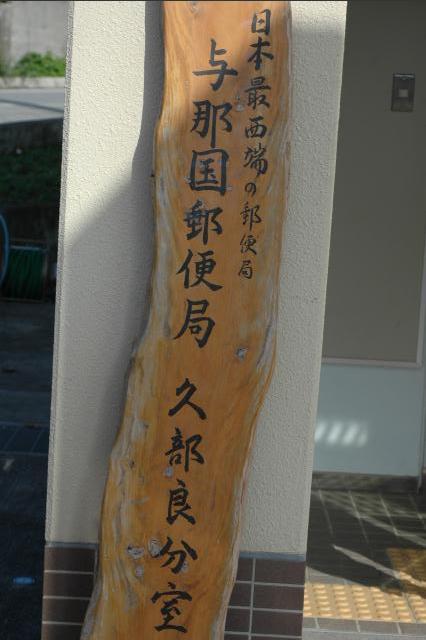 日本最西端の郵便局
与那国郵便局 久部良分室